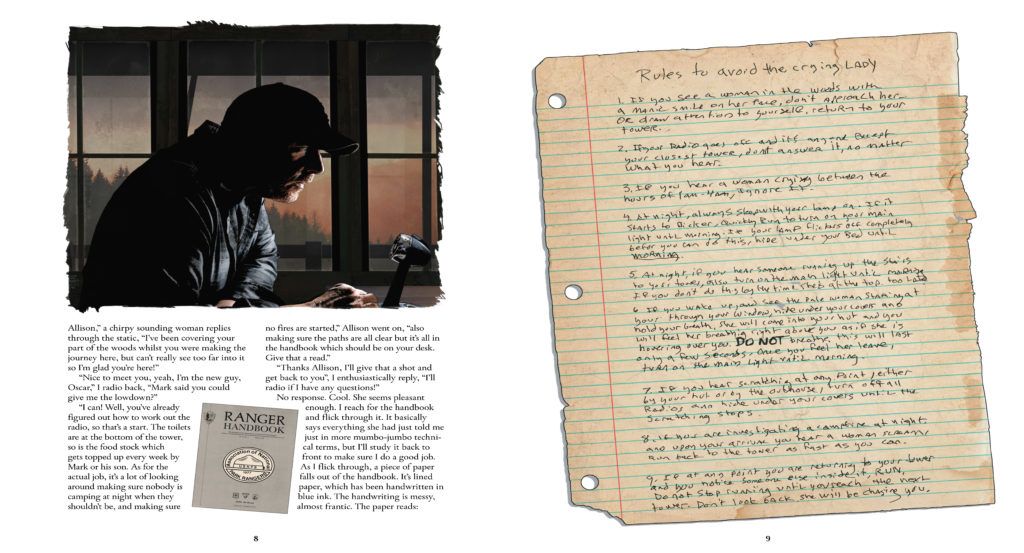 Allison,” a chirpy sounding woman replies
through the static, “I’ve been covering your
part of the woods whilst you were making the
journey here, but can’t really see too far into it
so I’m glad you’re here!”
“Nice to meet you, yeah, I’m the new guy,
Oscar,” I radio back, “Mark said you could
give me the lowdown?”
“I can! Well, you’ve already
figured out how to work out the
radio, so that’s a start. The toilets
are at the bottom of the tower,
so is the food stock which
gets topped up every week by
Mark or his son. As for the
actual job, it’s a lot of looking
around making sure nobody is
camping at night when they
shouldn’t be, and making sure
no fires are started,” Allison went on, “also
making sure the paths are all clear but it’s all in
the handbook which should be on your desk.
Give that a read.”
“Thanks Allison, I’ll give that a shot and
get back to you”, I enthusiastically reply, “I’ll
radio if I have any questions!”
No response. Cool. She seems pleasant
enough. I reach for the handbook
and flick through it. It basically
says everything she had just told me
just in more mumbo-jumbo techni-
cal terms, but I’ll study it back to
front to make sure I do a good job.
As I flick through, a piece of paper
falls out of the handbook. It’s lined
paper, which has been handwritten in
blue ink. The handwriting is messy,
almost frantic. The paper reads:
RANGER
HANDBOOK
8
Rules to avoid the crying LADY
1. If you see a woman in the woods with
a manic smile on her face, don't approach her
OR draw attention to yourself, return to your
tower.
2. If your Radio goes off and it's anyone Except
your closest tower, don't answer it, no matter
what you hear.
3. If you hear a woman crying between the
hours of 1am-4am, ignore it.
4. At night, always sleep with your lamp on. If it
starts to flicker, quickly run to turn on your main
light until morning. If your lamp flickers off completely
before you can do this, hide under your bed until
morning.
5. At night, if you hear someone running up the stairs
to your tower, also turn on the main light until morning
If you don't do this by the time she's at the top, too late
6. If you wake up, and see the pale woman staring at
your through your window, hide under your covers and
hold your breath. She will come into your hut and you
will feel her breathing right above you as if she is
towering over you. DO NOT breathe, this will last
only a few seconds. Once you feel her leave,
turn on the main light until morning.
7. If you hear scratching at any point, either
by your hut or by the outhouse, turn off all
Radios, and hide under your covers until the
scratching stops
8. If you are investigating a campfire at night
and upon your arrival you hear a woman scream,
Run back to the tower as fast as you can.
9. If at any point you are returning to your tower
and you notice someone else inside it, RUN.
Do not stop running until you reach the next
tower. Don't look back she will be chasing you.
9